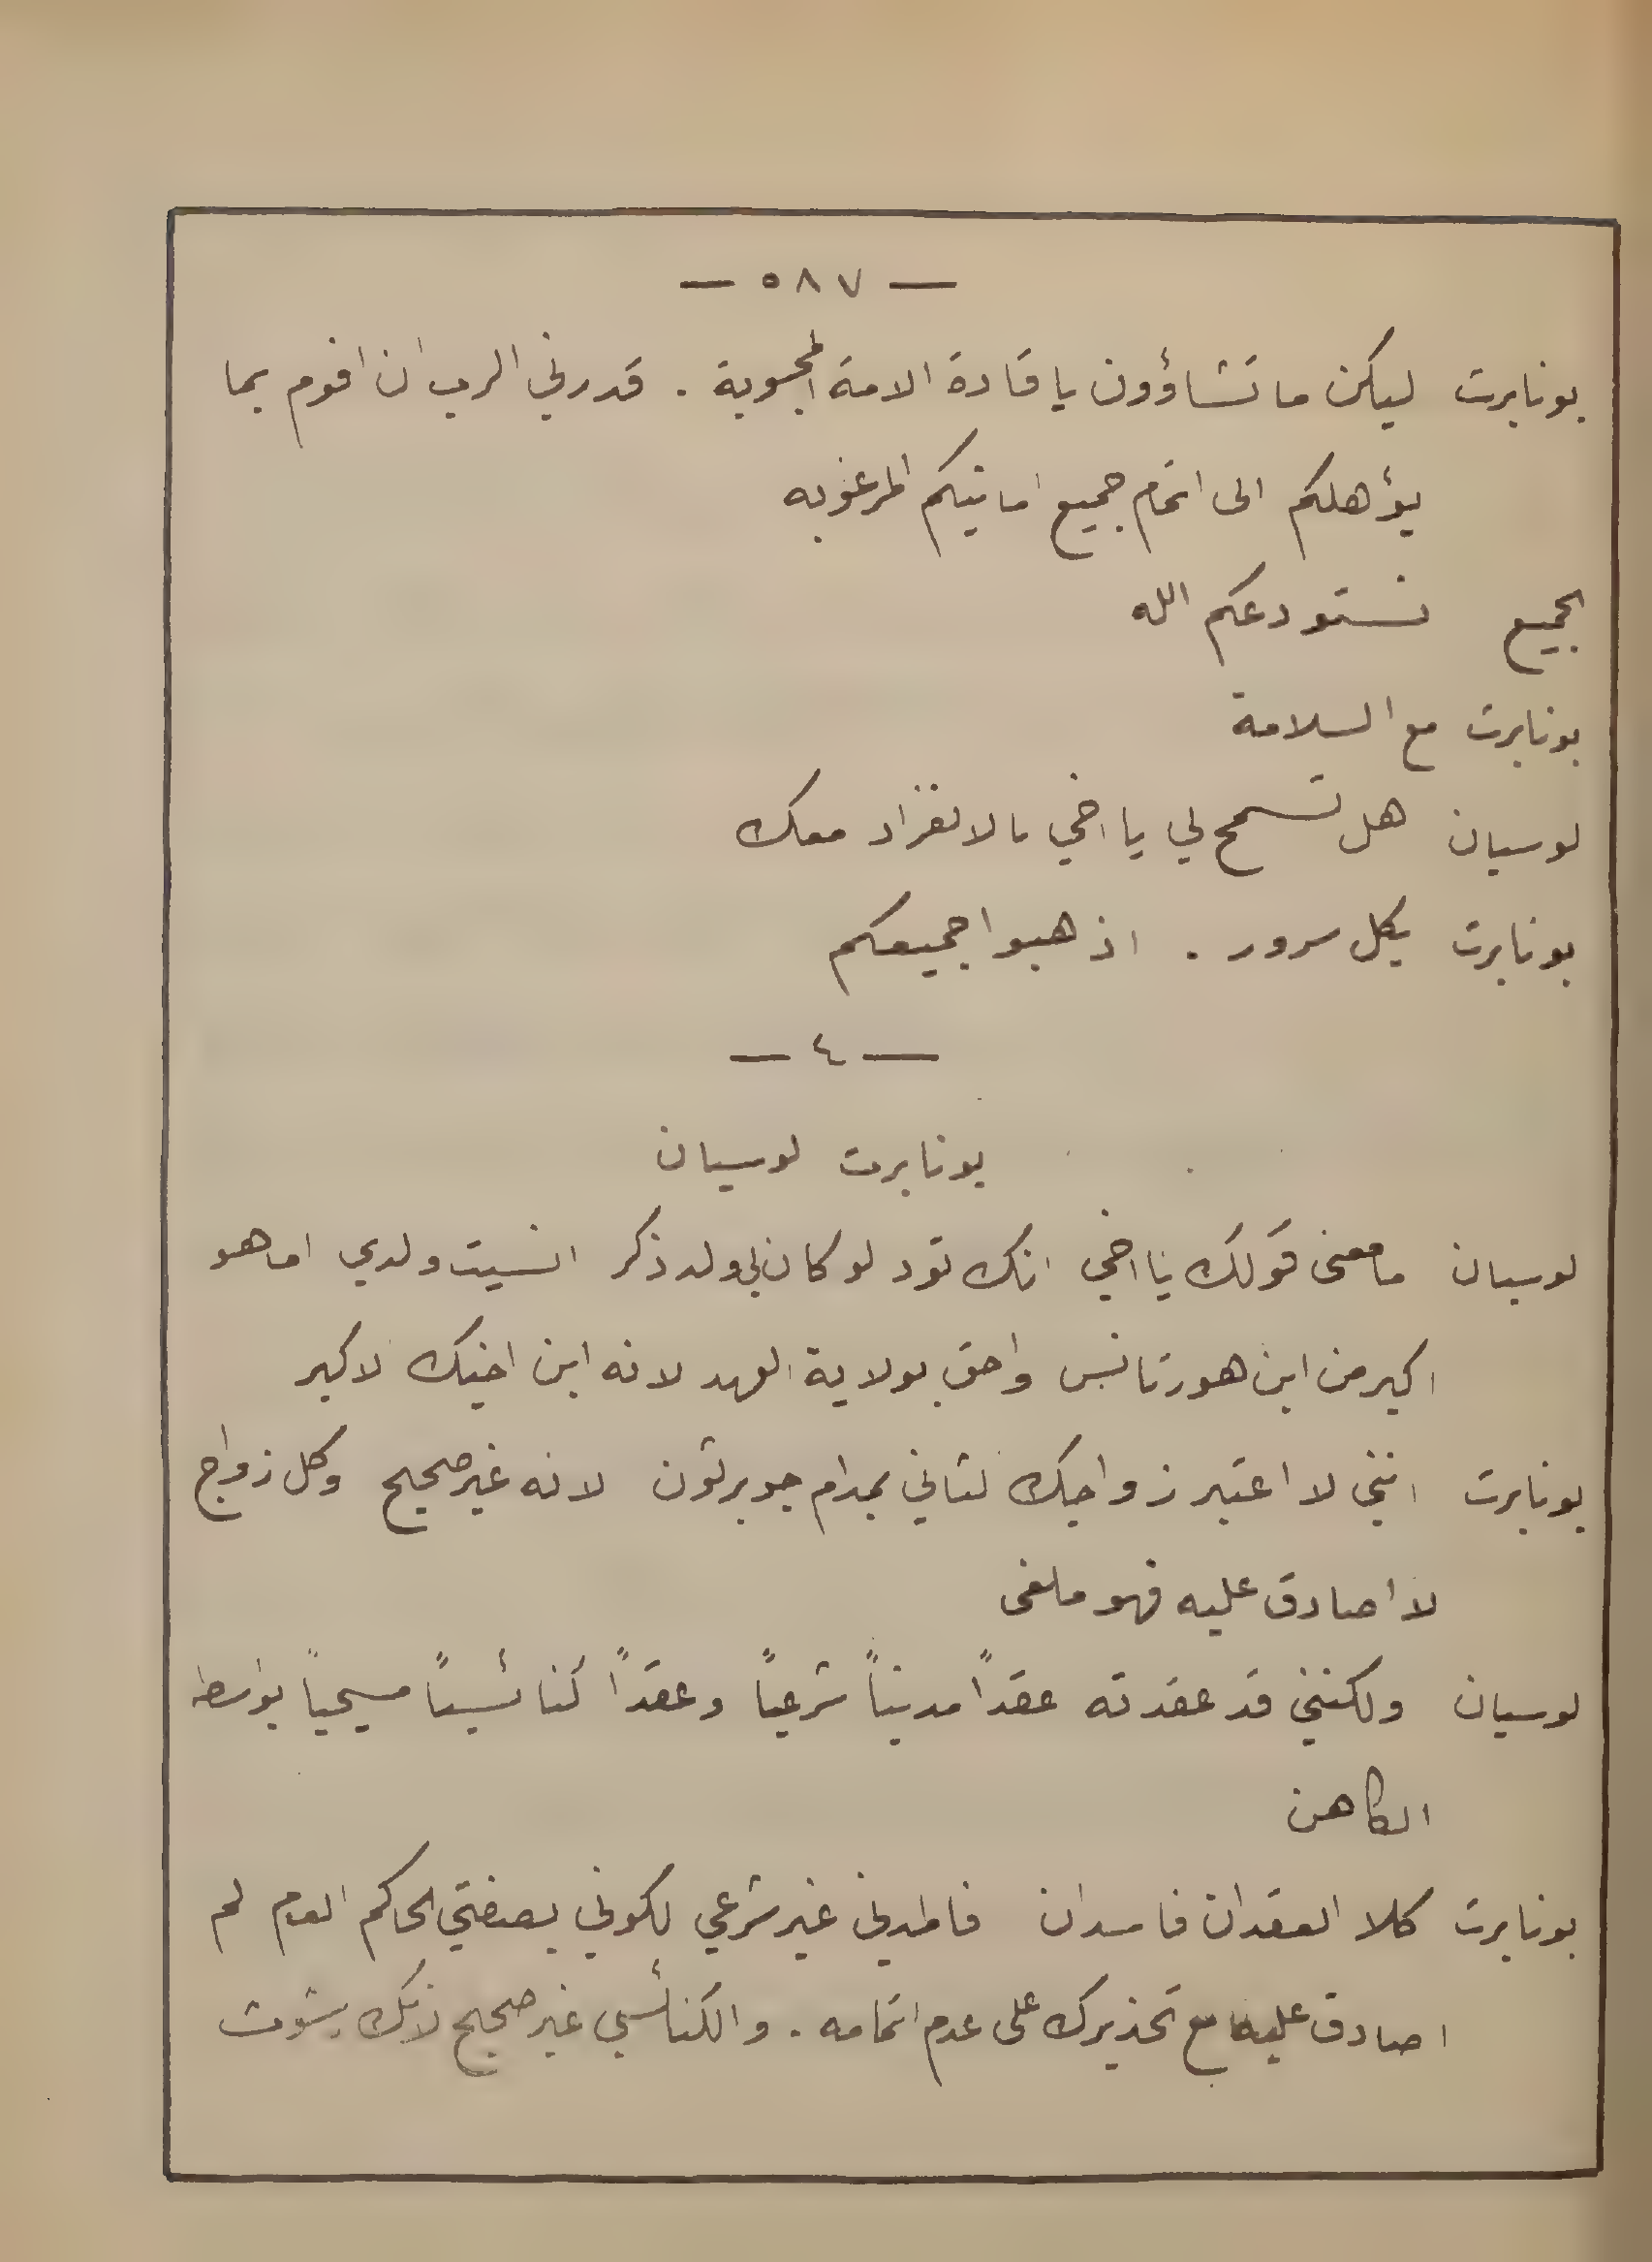 — ٥٨٧ —
بونابرت ليكن ما تشاؤون يا قادة الامة المحبوبة . قدرني الرب ان اقوم بما
يؤهلكم الى اتمام جميع امانيكم المرغوبه
الجميع نستودعكم الله
بونابرت مع السلامة
لوسيان هل تسمح لي يا اخي بالانفراد معك
بونابرت بكل سرور . اذهبوا جميعكم
— ٤ —
بونابرت لوسيان
لوسيان ما معنى قولك يا اخي انك تود لو كان لي ولد ذكر انسيت ولدي اما هو
اكبر من ابن هورتانس واحق بولاية العهد لانه ابن اخيك الاكبر
بونابرت انني لا اعتبر زواجك الثاني بمدام جوبرثون لانه غير صحيح وكل زواج
لا اصادق عليه فهو ملغى
لوسيان ولكنني قد عقدته عقداً مدنياً شرعياً وعقداً كنائسياً مسيحياً بواسطة
الكاهن
بونابرت كلا العقدان فاسدان فالمدني غير شرعي لكوني بصفتي الحاكم العام لم
اصادق عليه مع تحذيرك على عدم اتمامه . والكنائسي غير صحيح لانك